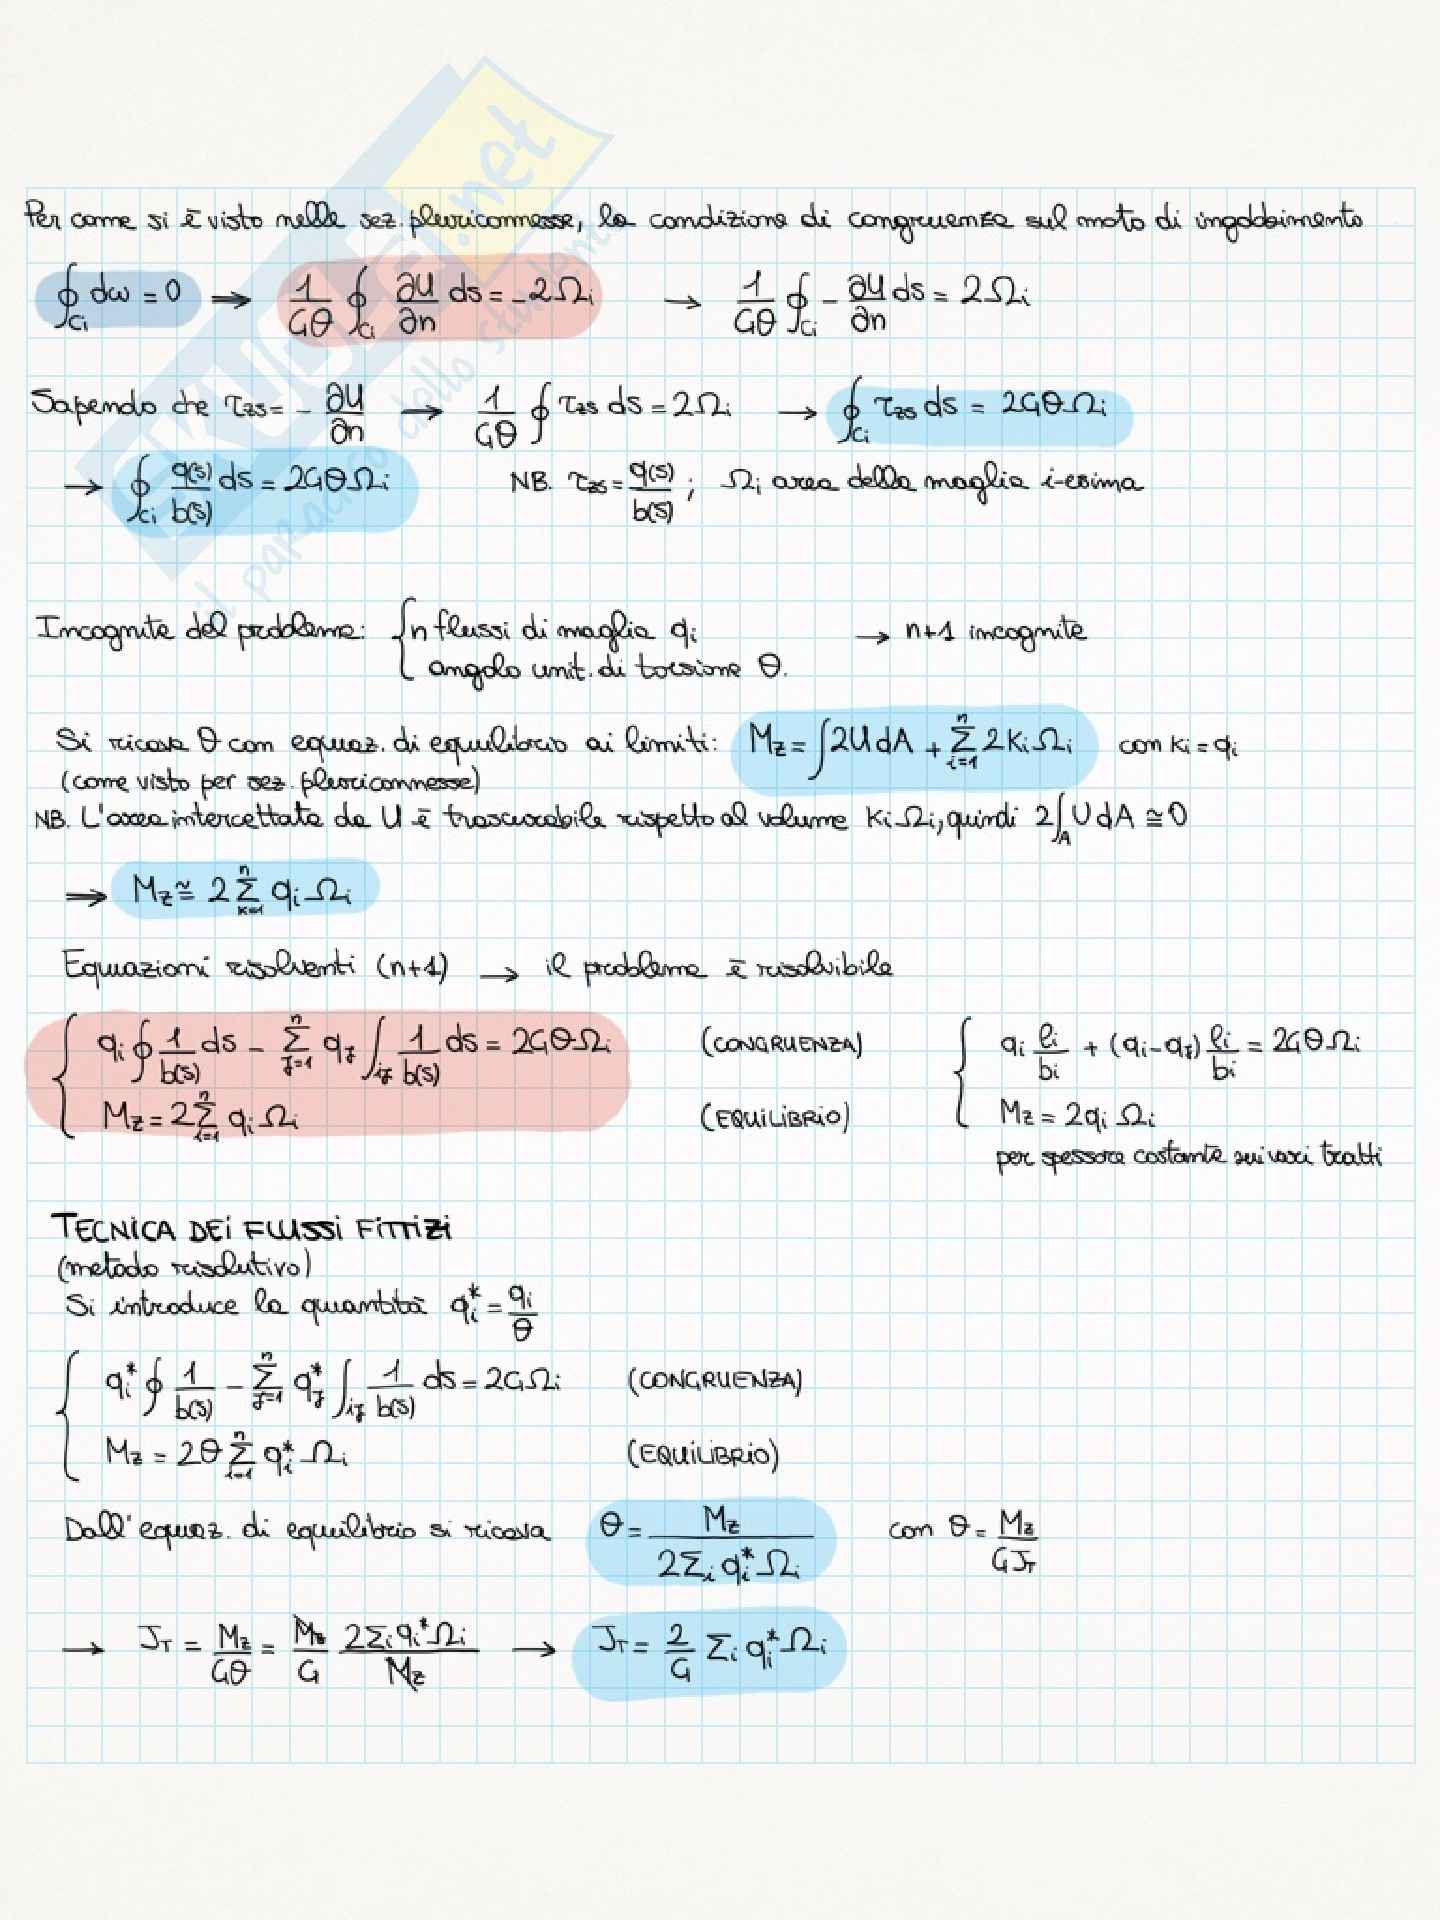 Per come si è visto nelle sez. pluriconnesse, la condizione di congruenza sul moto di ingobbimento
∮_Ci dω = 0 ⇒ 1/(Gθ) ∮_Ci ∂U/∂n ds = -2Ωi → 1/(Gθ) ∮_Ci - ∂U/∂n ds = 2Ωi
Sapendo che τzs = - ∂U/∂n → 1/(Gθ) ∮ τzs ds = 2Ωi → ∮_Ci τzs ds = 2GθΩi
→ ∮_Ci q(s)/b(s) ds = 2GθΩi NB. τzs = q(s)/b(s) ; Ωi area della maglia i-esima
Incognite del problema: { n flussi di maglia qi → n+1 incognite
angolo unit. di torsione θ.
Si ricava θ con equaz. di equilibrio ai limiti: Mz = ∫2UdA + Σ_{i=1}^{n} 2KiΩi con Ki = qi
(come visto per sez. pluriconnesse)
NB. L'area intercettata da U è trascurabile rispetto al volume KiΩi, quindi 2∫_A UdA ≅ 0
⇒ Mz ≅ 2 Σ_{k=1}^{n} qi Ωi
Equazioni risolventi (n+1) → il problema è risolvibile
{ qi ∮ 1/b(s) ds - Σ_{j=1}^{n} qj ∫_ij 1/b(s) ds = 2GθΩi (CONGRUENZA) { qi li/bi + (qi-qj) li/bi = 2GθΩi
Mz = 2 Σ_{i=1}^{n} qi Ωi (EQUILIBRIO) Mz = 2qi Ωi
per spessore costante sui vari tratti
TECNICA DEI FLUSSI FITTIZI
(metodo risolutivo)
Si introduce la quantità qi* = qi/θ
{ qi* ∮ 1/b(s) - Σ_{j=1}^{n} qj* ∫_ij 1/b(s) ds = 2GΩi (CONGRUENZA)
Mz = 2θ Σ_{i=1}^{n} qi* Ωi (EQUILIBRIO)
Dall'equaz. di equilibrio si ricava θ = Mz/(2Σi qi* Ωi) con θ = Mz/(GJT)
→ JT = Mz/(Gθ) = Mz/G 2Σi qi* Ωi/Mz → JT = 2/G Σi qi* Ωi
SKUOLA.net
il paradiso dello studente